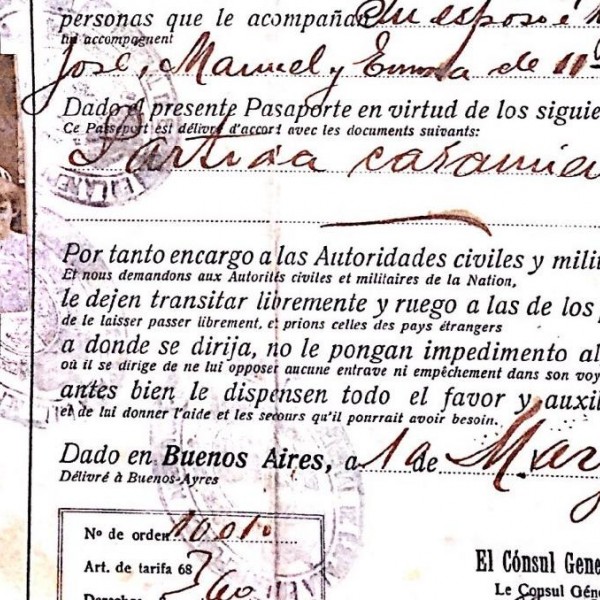 personas que le acompañan Su esposo é
qui accompagnent
José, Manuel y Emma de 11
Dado el presente Pasaporte en virtud de los siguie
Ce Passeport est délivré d'accort avec les documents suivants:
Partida casamien
Por tanto encargo a las Autoridades civiles y milit
Et nous demandons aux Autorités civiles et militaires de la Nation,
le dejen transitar libremente y ruego a las de los
de le laisser passer librement, et prions celles des pays étrangers
a donde se dirija, no le pongan impedimento al
où il se dirige de ne lui opposer aucune entrave ni empêchement dans son voy
antes bien le dispensen todo el favor y auxil
et de lui donner l'aide et les secours qu'il pourrait avoir besoin.
Dado en Buenos Aires, a 1 de Marz
Délivré à Buenos-Ayres
Nº de orden 10010
Art. de tarifa 68
El Cónsul Gene
Le Consul Géné
Derechos